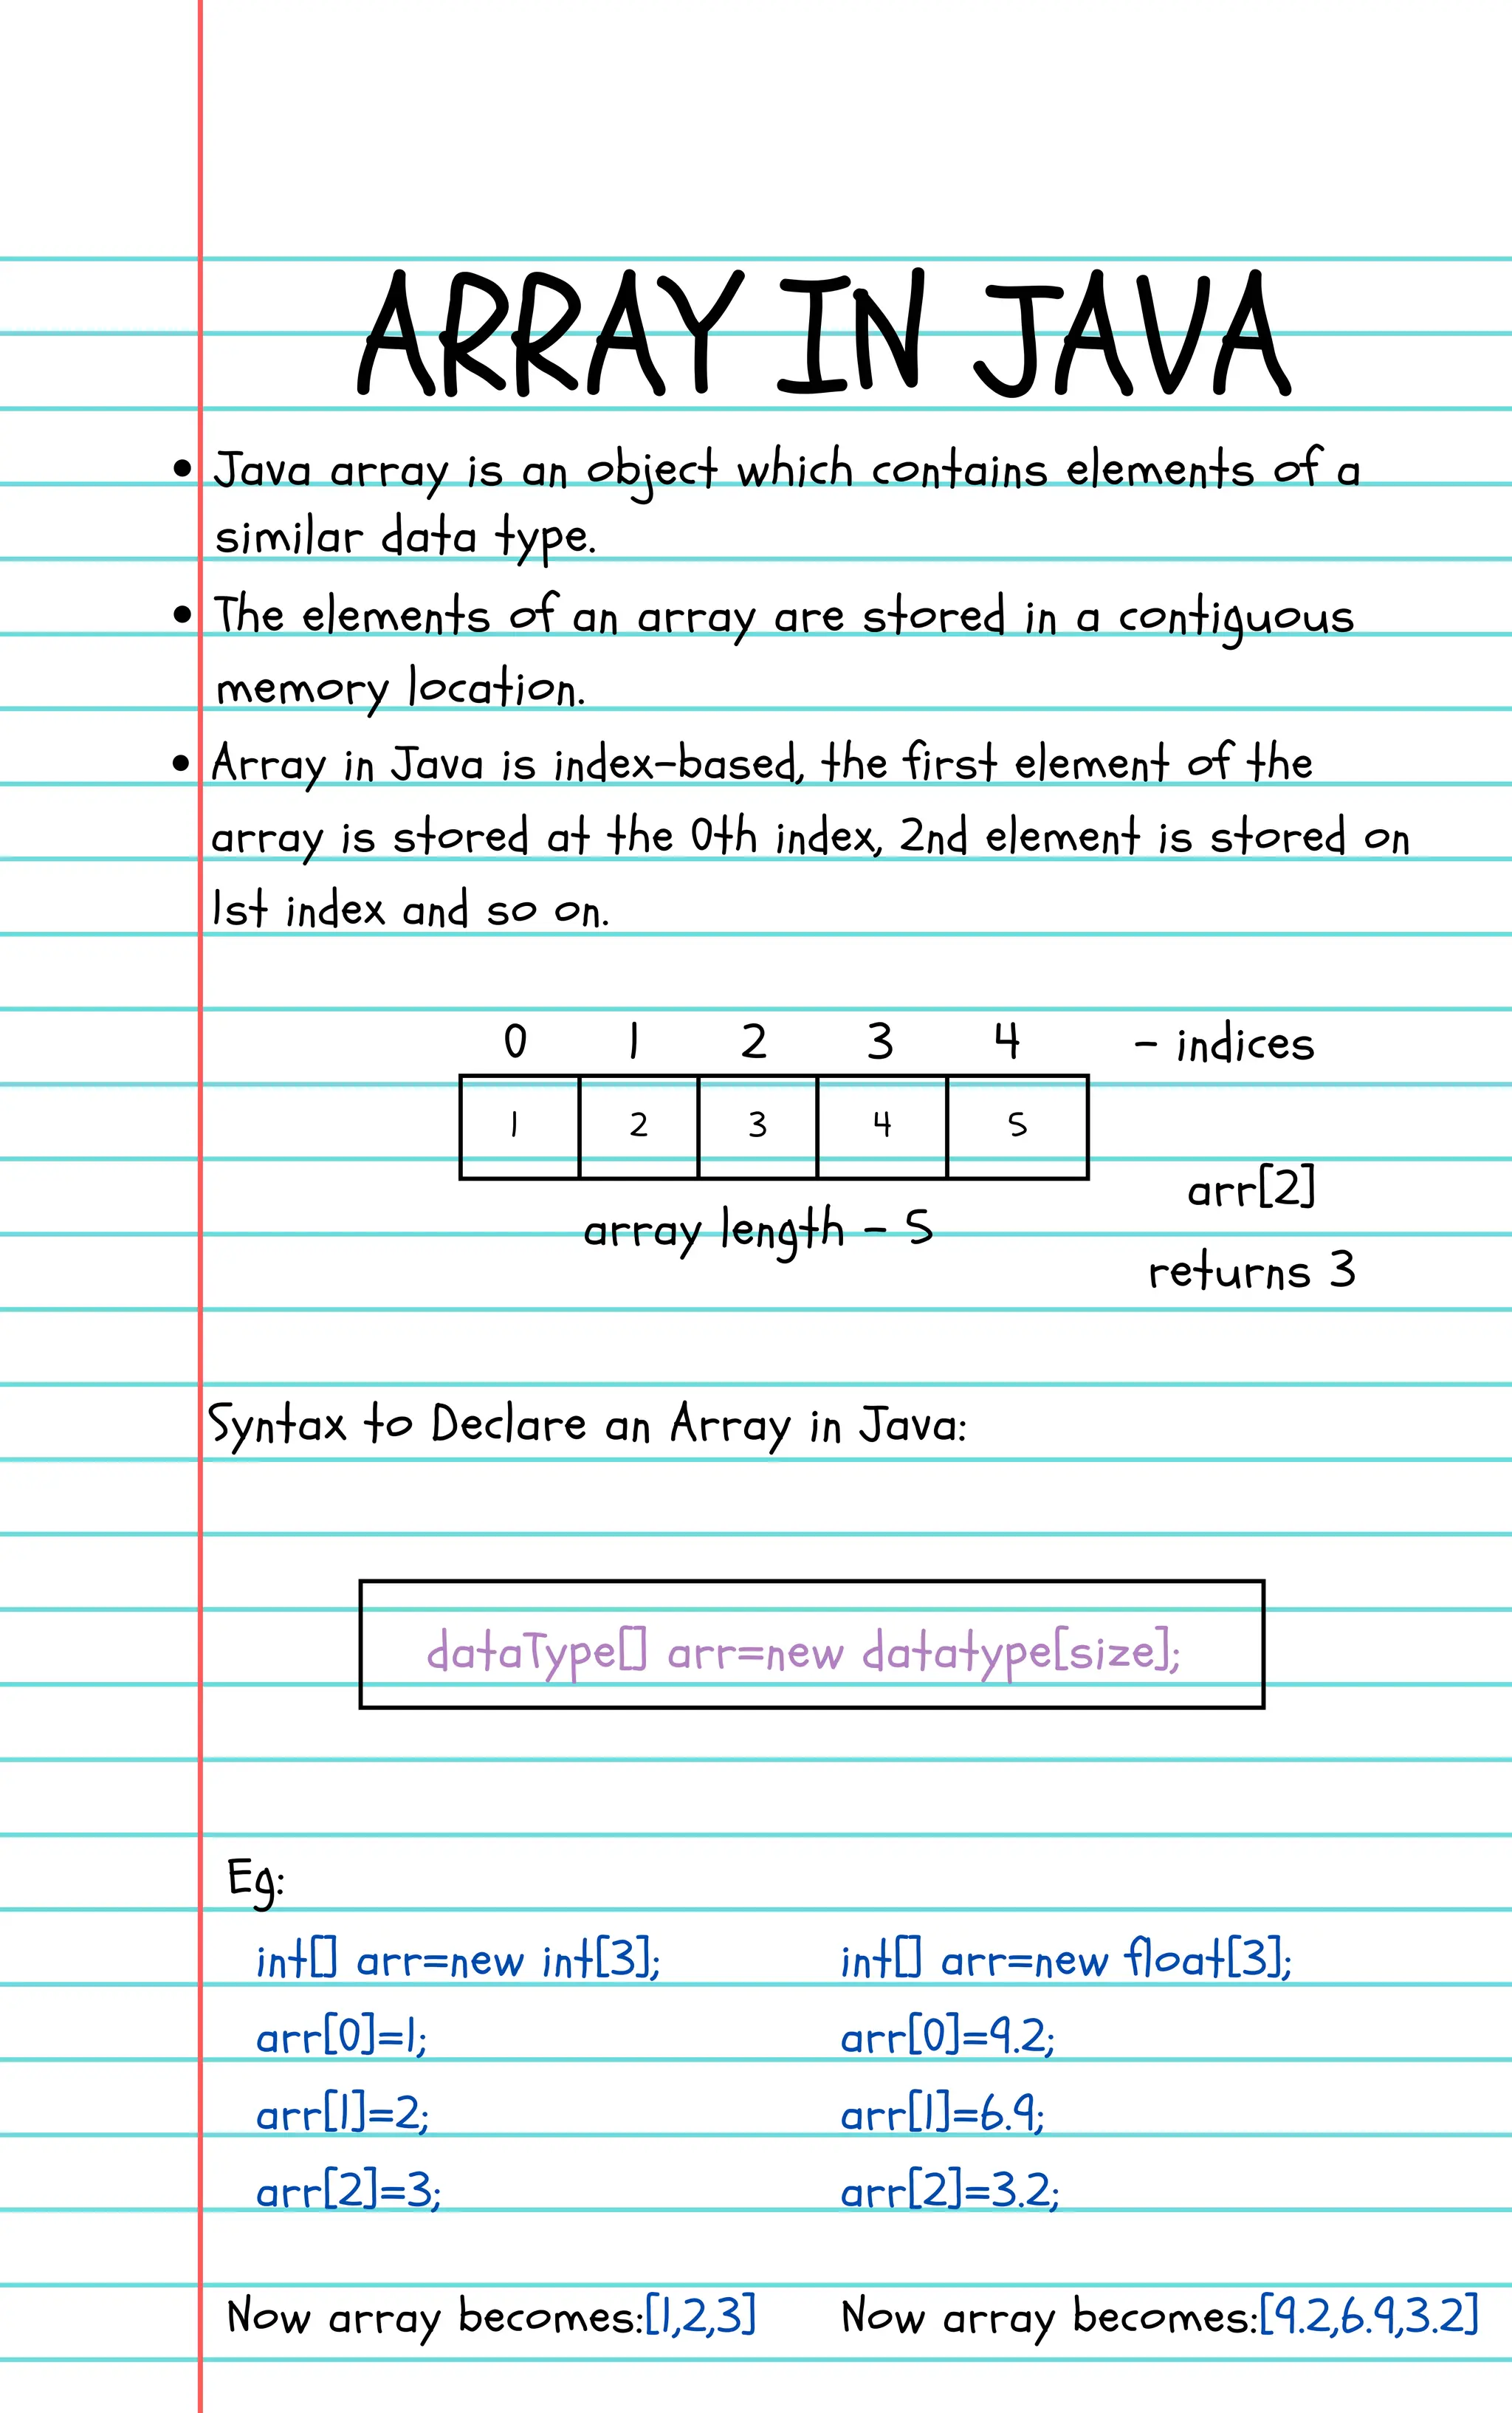 ARRAY IN JAVA
• Java array is an object which contains elements of a
similar data type.
• The elements of an array are stored in a contiguous
memory location.
• Array in Java is index-based, the first element of the
array is stored at the 0th index, 2nd element is stored on
1st index and so on.
0 1 2 3 4 - indices
1 2 3 4 5
arr[2]
array length - 5
returns 3
Syntax to Declare an Array in Java:
dataType[] arr=new datatype[size];
Eg:
int[] arr=new int[3];
arr[0]=1;
arr[1]=2;
arr[2]=3;
Now array becomes:[1,2,3]
int[] arr=new float[3];
arr[0]=9.2;
arr[1]=6.9;
arr[2]=3.2;
Now array becomes:[9.2,6.9,3.2]